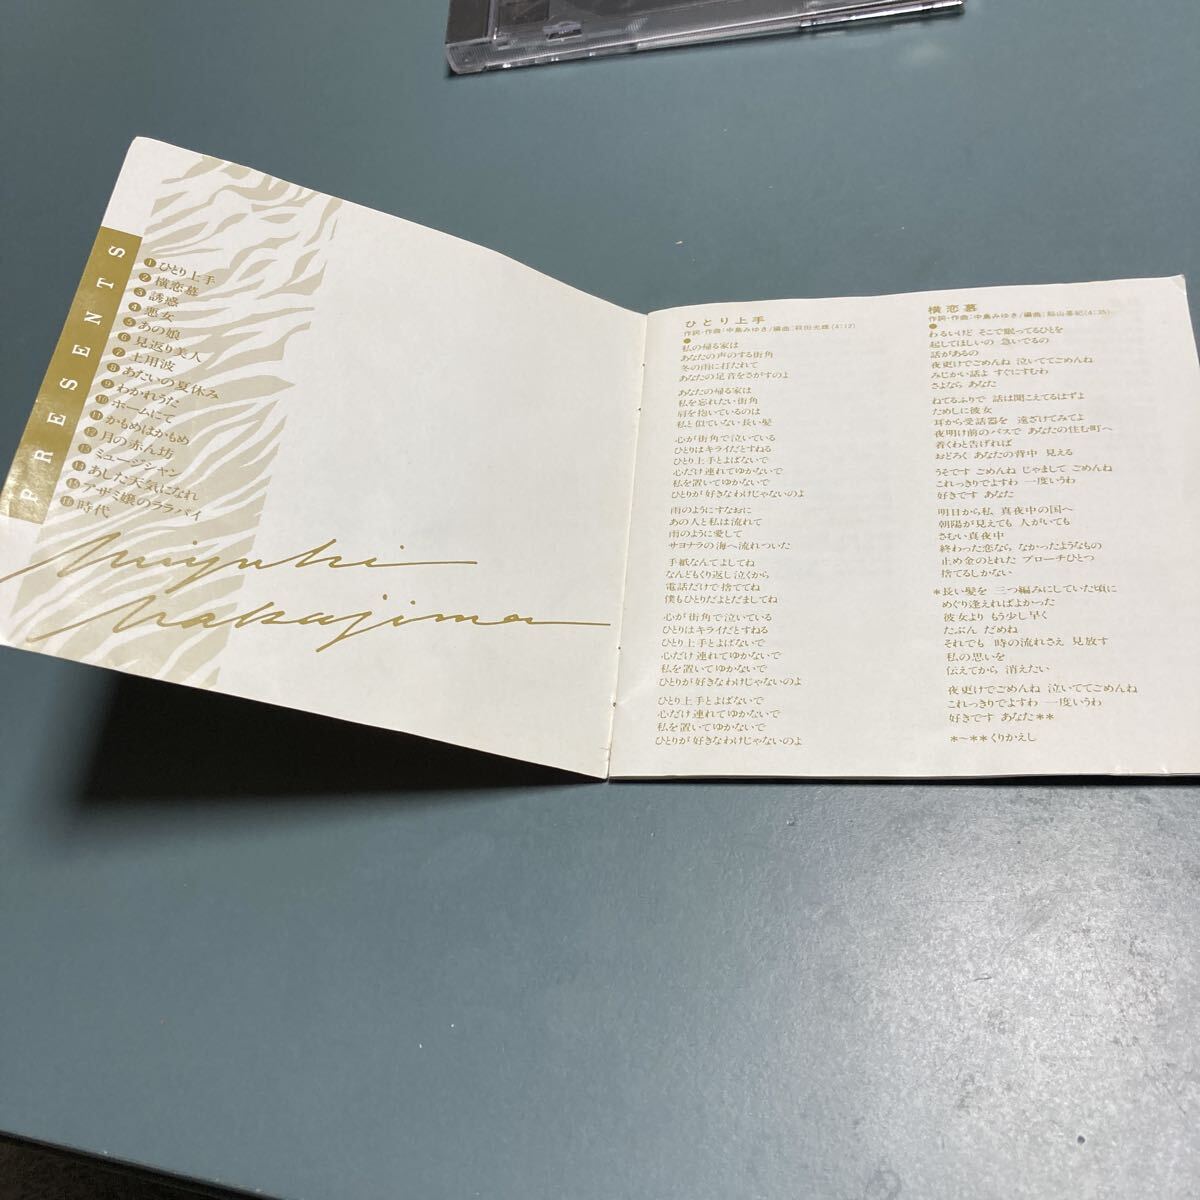 PRESENTS
❶ひとり上手
❷横恋慕
❸誘惑
❹悪女
❺あの娘
❻見返り美人
❼土用波
❽あたいの夏休み
❾わかれうた
❿ホームにて
⓫かもめはかもめ
⓬月の赤ん坊
⓭ミュージシャン
⓮あした天気になれ
⓯アザミ嬢のララバイ
⓰時代
Miyuki
Nakajima
ひとり上手
作詞・作曲:中島みゆき/編曲:萩田光雄(4:12)
●
私の帰る家は
あなたの声のする街角
冬の雨に打たれて
あなたの足音をさがすのよ
あなたの帰る家は
私を忘れたい街角
肩を抱いているのは
私と似ていない長い髪
心が街角で泣いている
ひとりはキライだとすねる
ひとり上手とよばないで
心だけ連れてゆかないで
私を置いてゆかないで
ひとりが好きなわけじゃないのよ
雨のようにすなおに
あの人と私は流れて
雨のように愛して
サヨナラの海へ流れついた
手紙なんてよしてね
なんどもくり返し泣くから
電話だけで捨ててね
僕もひとりだよとだましてね
心が街角で泣いている
ひとりはキライだとすねる
ひとり上手とよばないで
心だけ連れてゆかないで
私を置いてゆかないで
ひとりが好きなわけじゃないのよ
ひとり上手とよばないで
心だけ連れてゆかないで
私を置いてゆかないで
ひとりが好きなわけじゃないのよ
横恋慕
作詞・作曲:中島みゆき/編曲:船山基紀(4:35)
●
わるいけど そこで眠ってるひとを
起してほしいの 急いでるの
話があるの
夜更けでごめんね 泣いててごめんね
みじかい話よ すぐにすむわ
さよなら あなた
ねてるふりで 話は聞こえてるはずよ
ためしに彼女
耳から受話器を 遠ざけてみてよ
夜明け前のバスで あなたの住む町へ
着くわと告げれば
おどろく あなたの背中 見える
うそです ごめんね じゃまして ごめんね
これっきりですわ 一度いうわ
好きです あなた
明日から私 真夜中の国へ
朝陽が見えても 人がいても
さむい真夜中
終わった恋なら なかったようなもの
止め金のとれた ブローチひとつ
捨てるしかない
＊長い髪を 三つ編みにしていた頃に
めぐり逢えればよかった
彼女より もう少し早く
たぶん だめね
それでも 時の流れさえ 見放す
私の思いを
伝えてから 消えたい
夜更けでごめんね 泣いててごめんね
これっきりですわ 一度いうわ
好きです あなた＊＊
＊～＊＊くりかえし